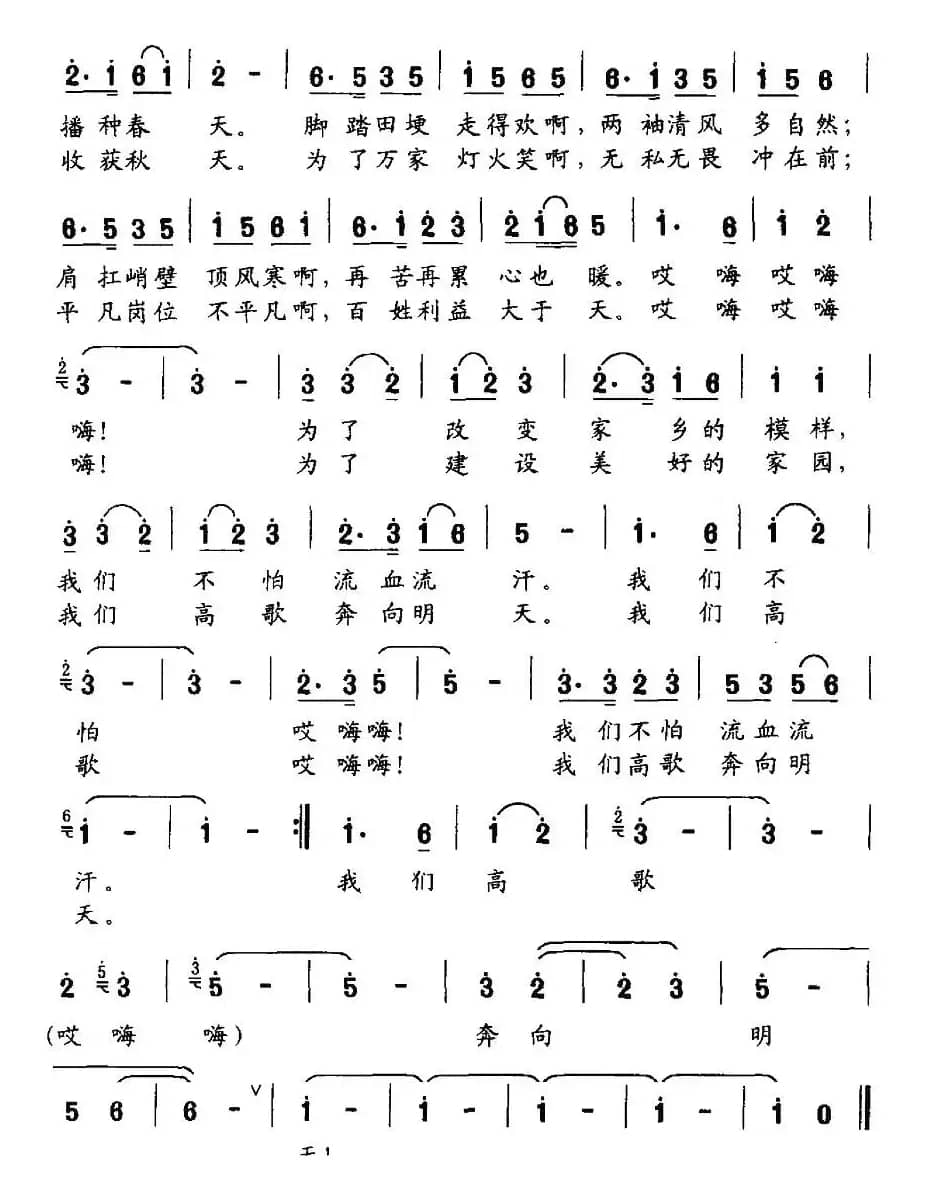 2·1 6 1 | 2 - | 6·5 3 5 | 1 5 6 5 | 6·1 3 5 | 1 5 6 |
播种春 天。 脚踏田埂 走得欢啊，两袖清风 多自然；
收获秋 天。 为了万家 灯火笑啊，无私无畏 冲在前；
6·5 3 5 | 1 5 6 1 | 6·1 2 3 | 2 1 6 5 | 1· 6 | 1 2 |
肩扛峭壁 顶风寒啊，再苦再累 心也暖。哎 嗨哎嗨
平凡岗位 不平凡啊，百姓利益 大于天。哎 嗨哎嗨
2 3 - | 3 - | 3 3 2 | 1 2 3 | 2·3 1 6 | 1 1 |
嗨！ 为了 改变家 乡的模样，
嗨！ 为了 建设美 好的家园，
3 3 2 | 1 2 3 | 2·3 1 6 | 5 - | 1· 6 | 1 2 |
我们 不怕流血流 汗。 我们不
我们 高歌奔向明 天。 我们高
2 3 - | 3 - | 2·3 5 | 5 - | 3·3 2 3 | 5 3 5 6 |
怕 哎嗨嗨！ 我们不怕 流血流
歌 哎嗨嗨！ 我们高歌 奔向明
6 1 - | 1 - :| 1· 6 | 1 2 | 2 3 - | 3 - |
汗。 我们高 歌
天。
2 5 3 | 3 5 - | 5 - | 3 2 | 2 3 | 5 - |
(哎嗨 嗨) 奔向 明
5 6 | 6 - ∨ | 1 - | 1 - | 1 - | 1 - | 1 0 ‖